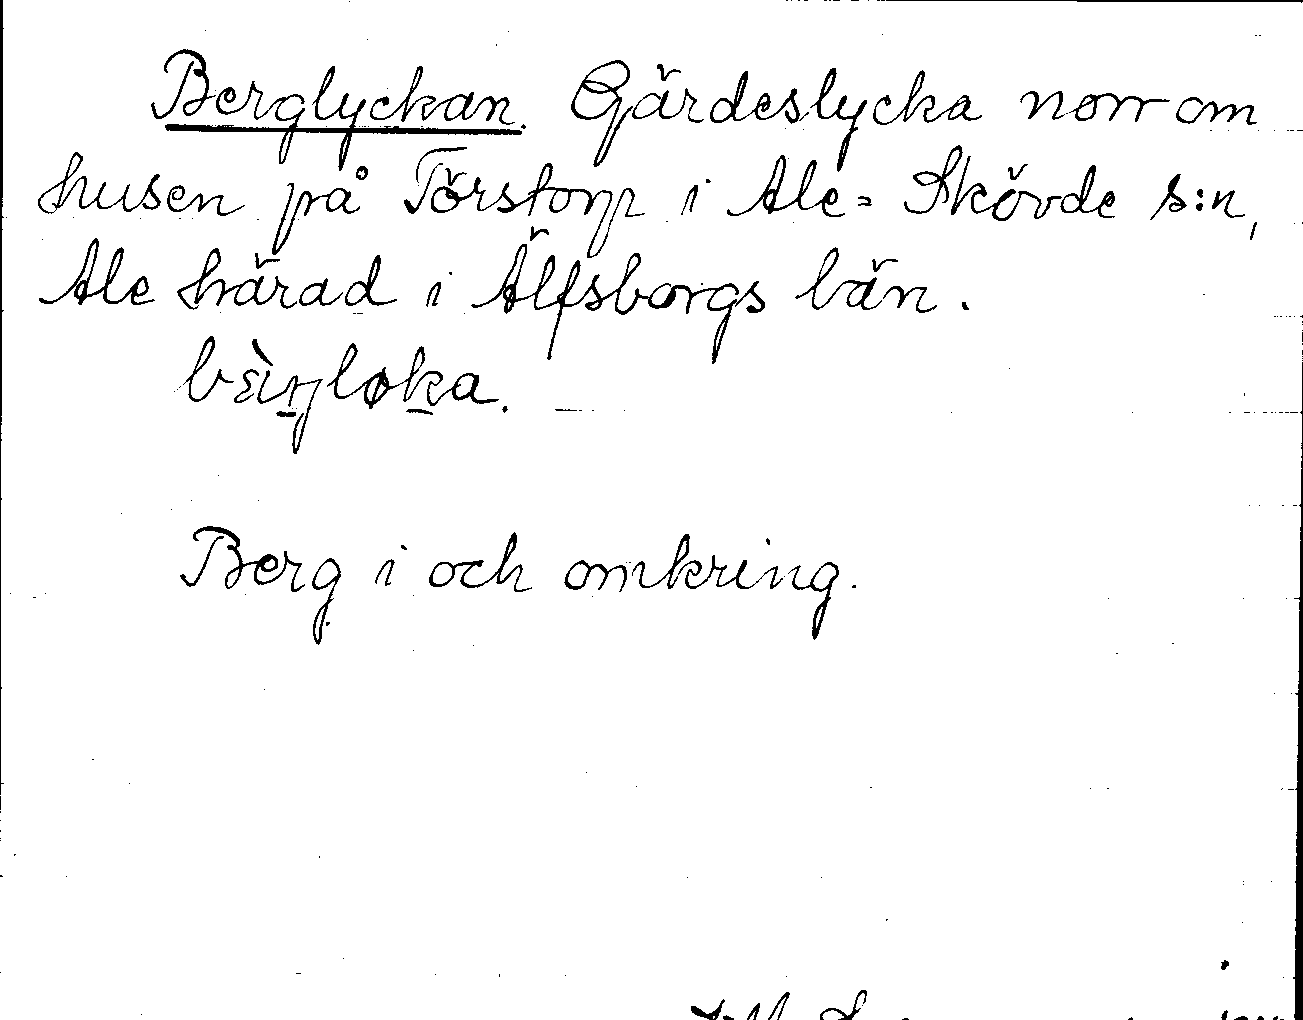 Berglyckan. Gärdeslycka norr om
husen på Törstorp i Ale-Skövde s:n,
Ale härad i Älfsborgs län.
Berg i och omkring.